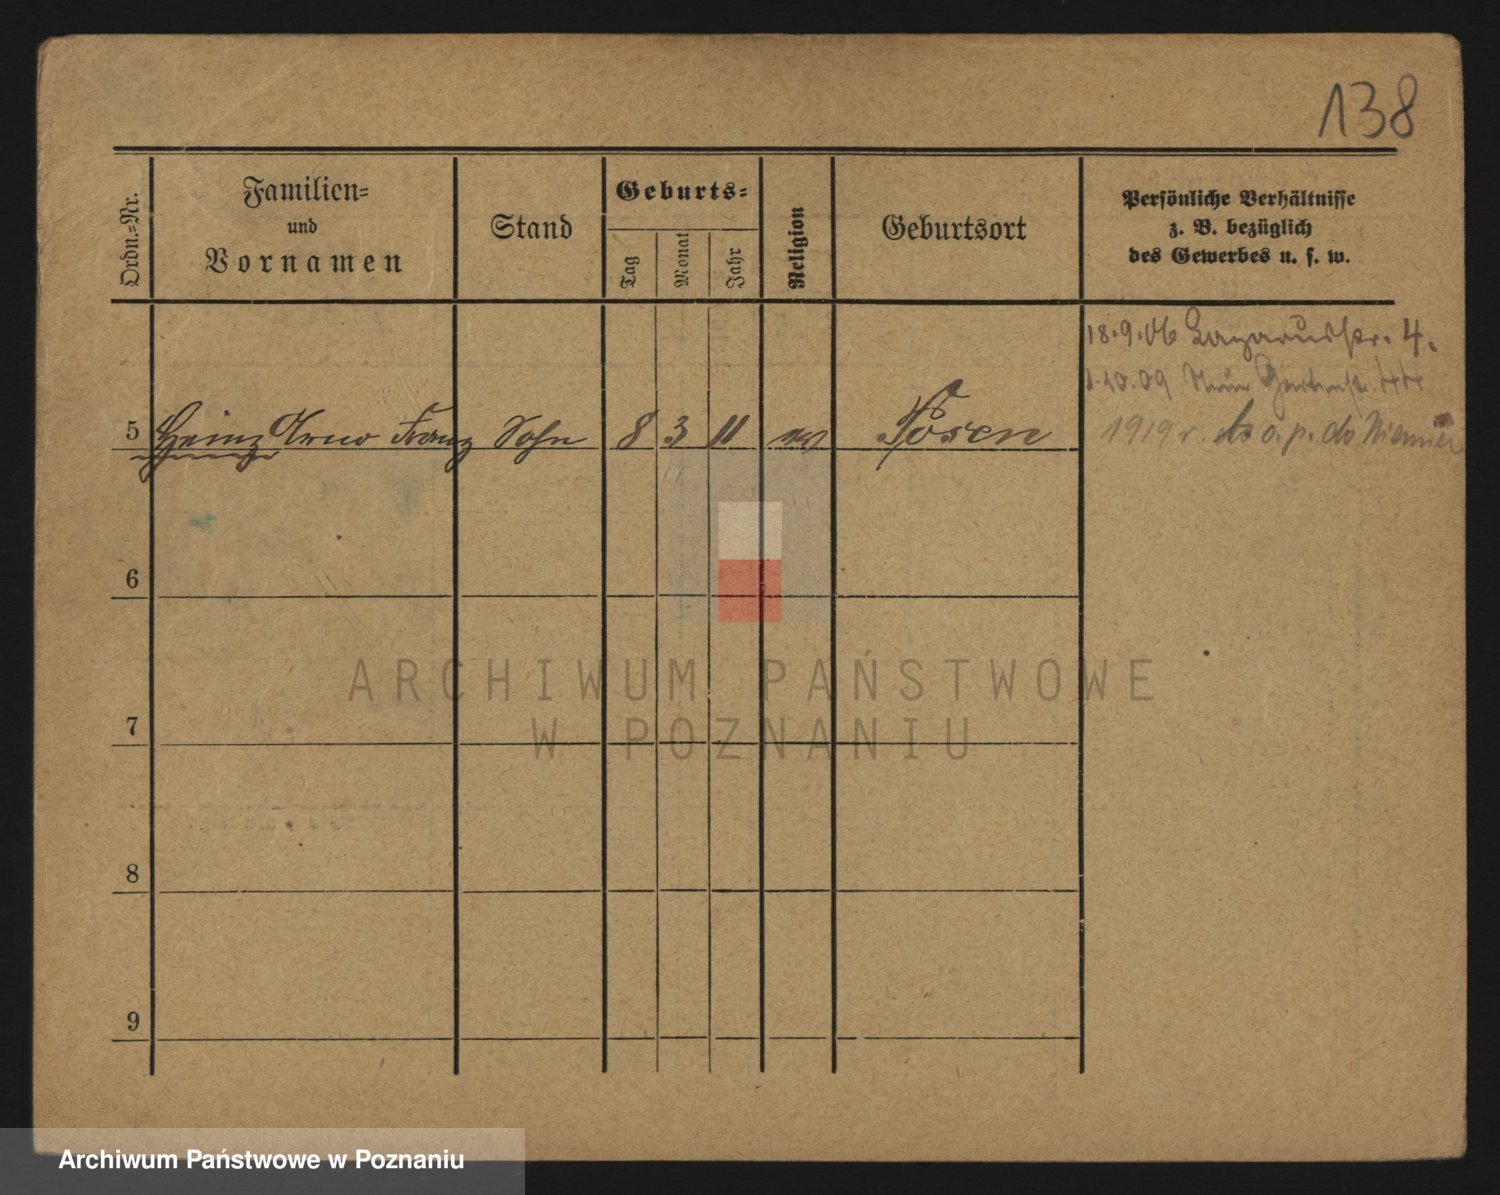 138
Ordn.-Nr.
Familien-
und
Vornamen
Stand
Geburts-
Tag
Monat
Jahr
Religion
Geburtsort
Persönliche Verhältnisse
z. B. bezüglich
des Gewerbes u. s. w.
18.9.06 Lazarusstr. 4.
1.10.09 Neue Gartenstr. 44
5 Heinz Arno Franz Sohn 8 3 11 ev Posen
1919 r. o. p. do Niemiec
6
7
8
9
ARCHIWUM PAŃSTWOWE
W POZNANIU
Archiwum Państwowe w Poznaniu